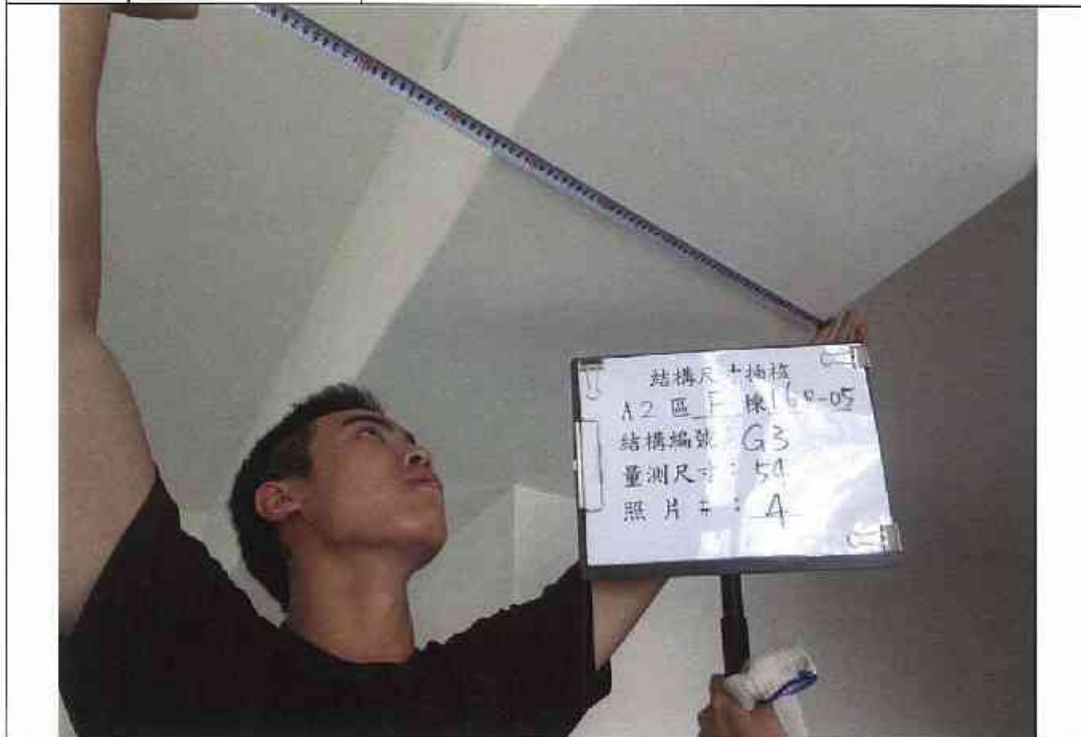 結構尺寸抽核
A2區 F 棟 160-05
結構編號：G3
量測尺寸：54
照片#：A